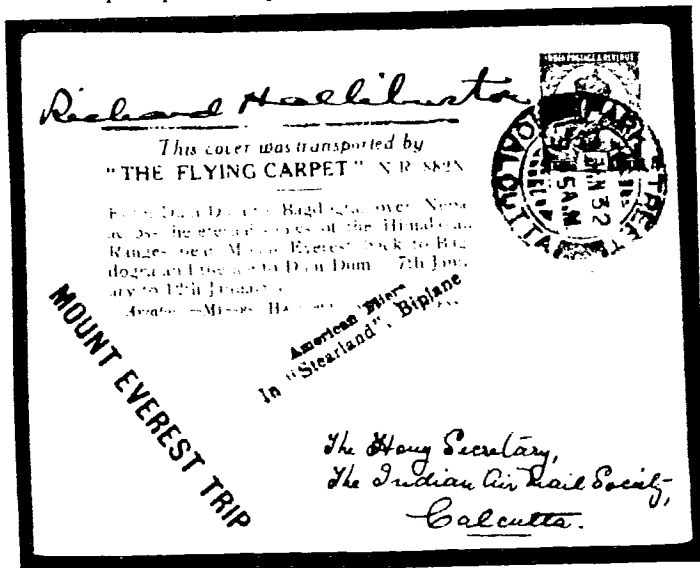 Richard Halliburton
This cover was transported by
"THE FLYING CARPET" N R 882N
From Dum Dum to Bagdogra, over Nepal
across the eternal snows of the Himalayan
Ranges near Mount Everest back to Bag
dogra and to Dum Dum 7th Janu
ary to 12th
American Fliers
In "Stearland", Biplane
MOUNT EVEREST TRIP
INDIA POSTAGE & REVENUE
PARK STREET
CALCUTTA
JAN 32
5 A.M
The Hony Secretary,
The Indian Air Mail Society,
Calcutta.